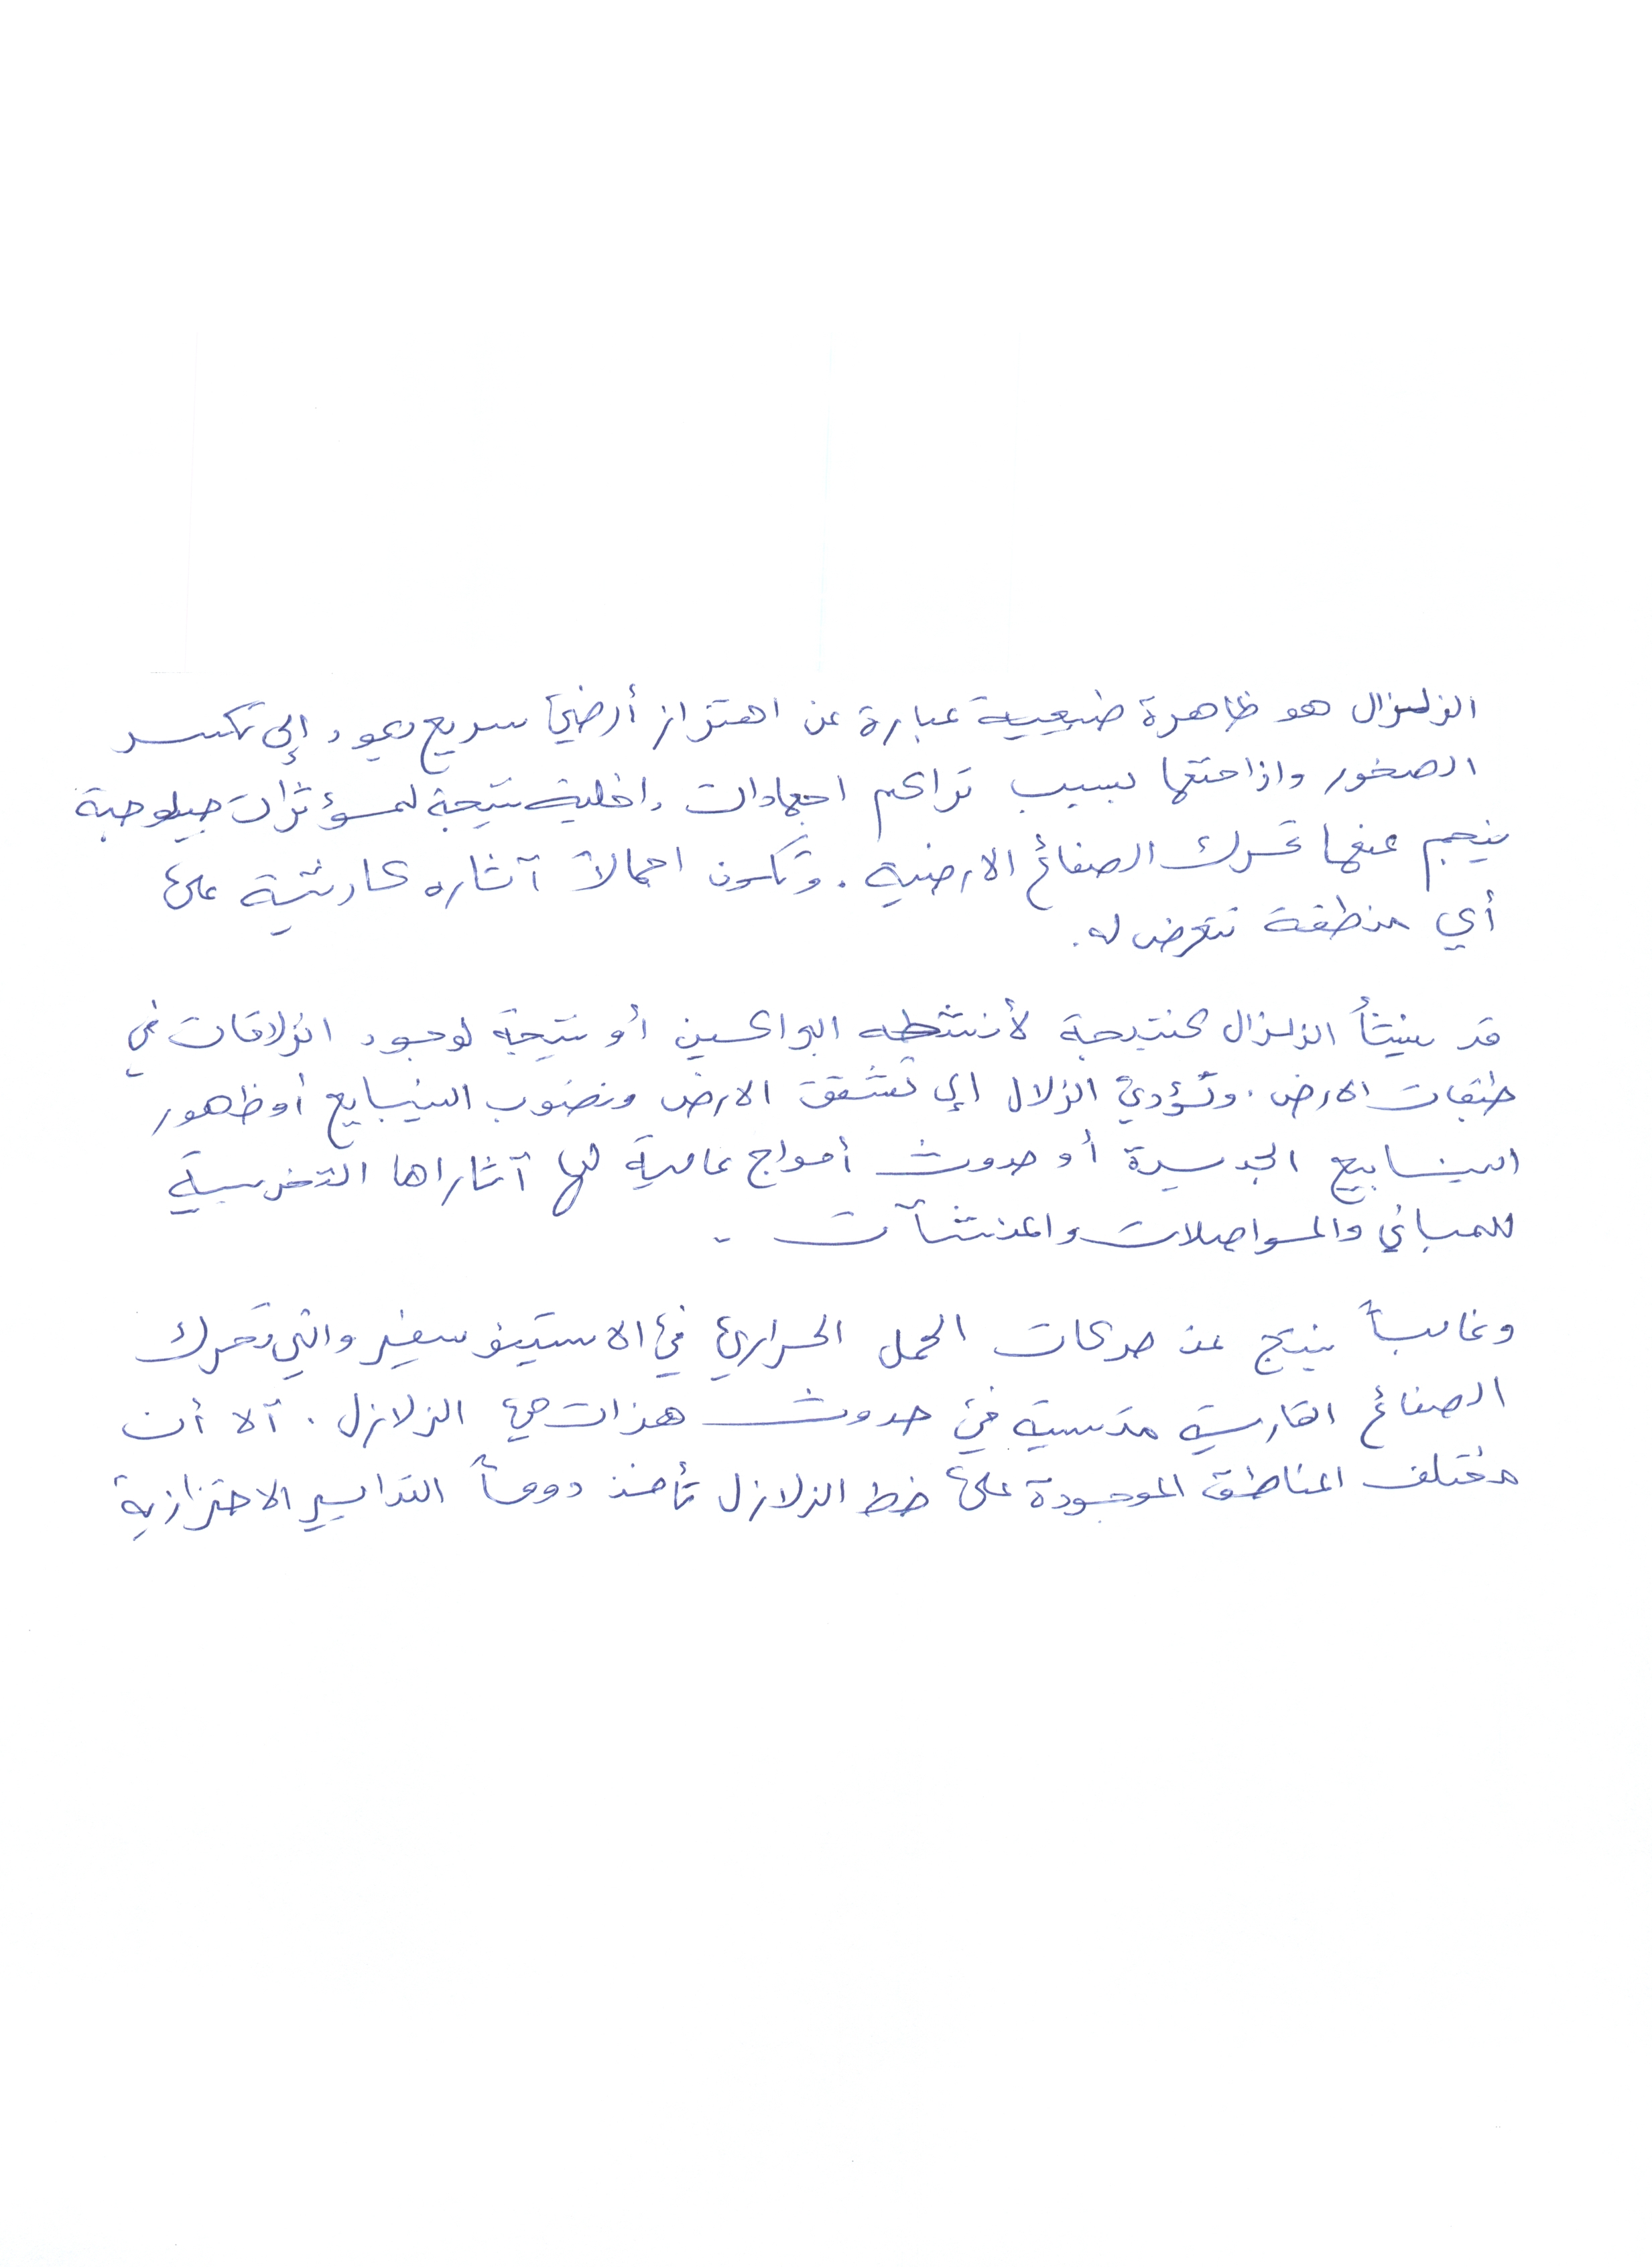 الزلزال هو ظاهرة طبيعية عبارة عن اهتزاز أرضي سريع يعود إلى تكسر
الصخور وازاحتها بسبب تراكم اجهادات داخلية نتيجة لمؤثرات جيلوجية
ينجم عنها تحرك الصفائح الارضية. وتكون اجمالاً آثاره كارثية على
أي منطقة تتعرض له.
قد ينشأ الزلزال كنتيجة لأنشطه البراكين أو نتيجة لوجود انزلاقات في
طبقات الارض. وتؤدي الزلال إلى تشقق الارض ونضوب الينابيع أو ظهور
الينابيع الجديدة أو حدوث أمواج عالية لها آثاراها التخريبية
للمباني والمواصلات والمنشآت.
وغالباً ينتج عن حركات الحمل الحراري في الاستينوسفير والتي تحرك
الصفائح القارية متسببة في حدوث هذات هي الزلازل. آلا أن
مختلف المناطق الموجودة على خط الزلازل تأخذ دوماً التدابير الاحترازية